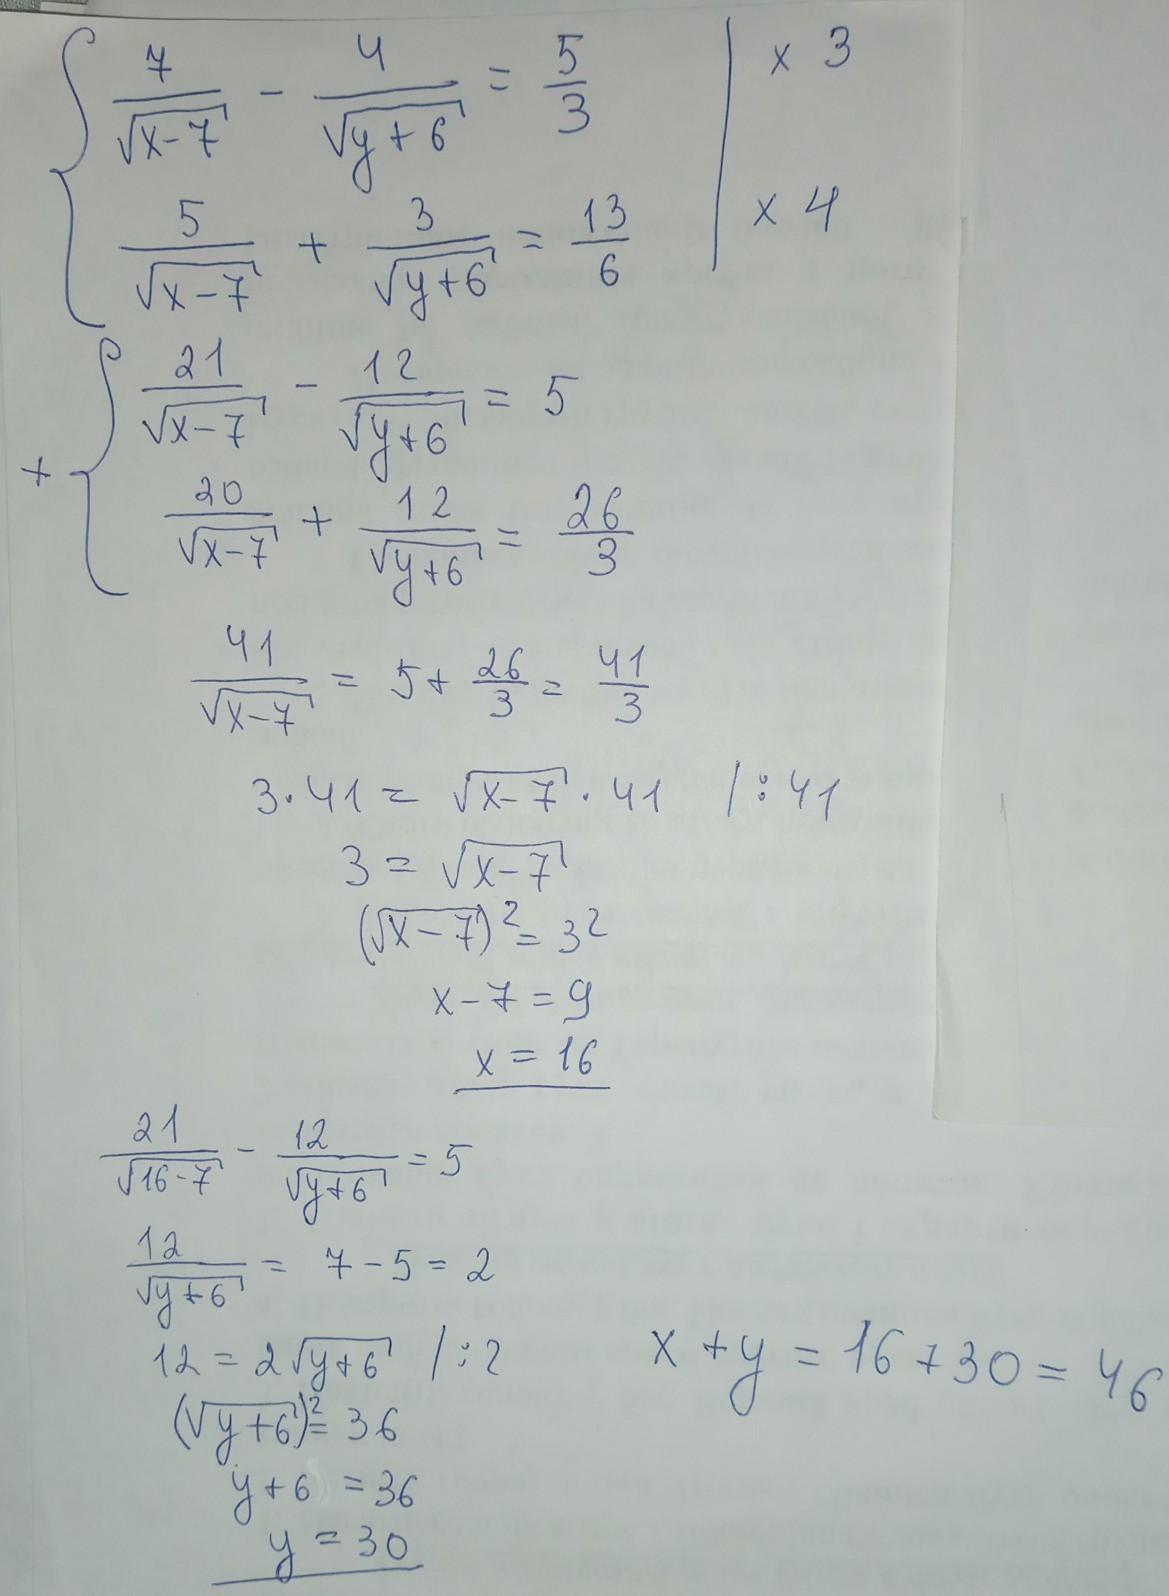 { 7/√(x-7) - 4/√(y+6) = 5/3 | x 3
5/√(x-7) + 3/√(y+6) = 13/6 | x 4
+ { 21/√(x-7) - 12/√(y+6) = 5
20/√(x-7) + 12/√(y+6) = 26/3
41/√(x-7) = 5 + 26/3 = 41/3
3·41 = √(x-7) · 41 /:41
3 = √(x-7)
(√(x-7))² = 3²
x-7 = 9
x = 16
21/√(16-7) - 12/√(y+6) = 5
12/√(y+6) = 7-5 = 2
12 = 2√(y+6) /:2
(√(y+6))² = 36
y+6 = 36
y = 30
x+y = 16+30 = 46